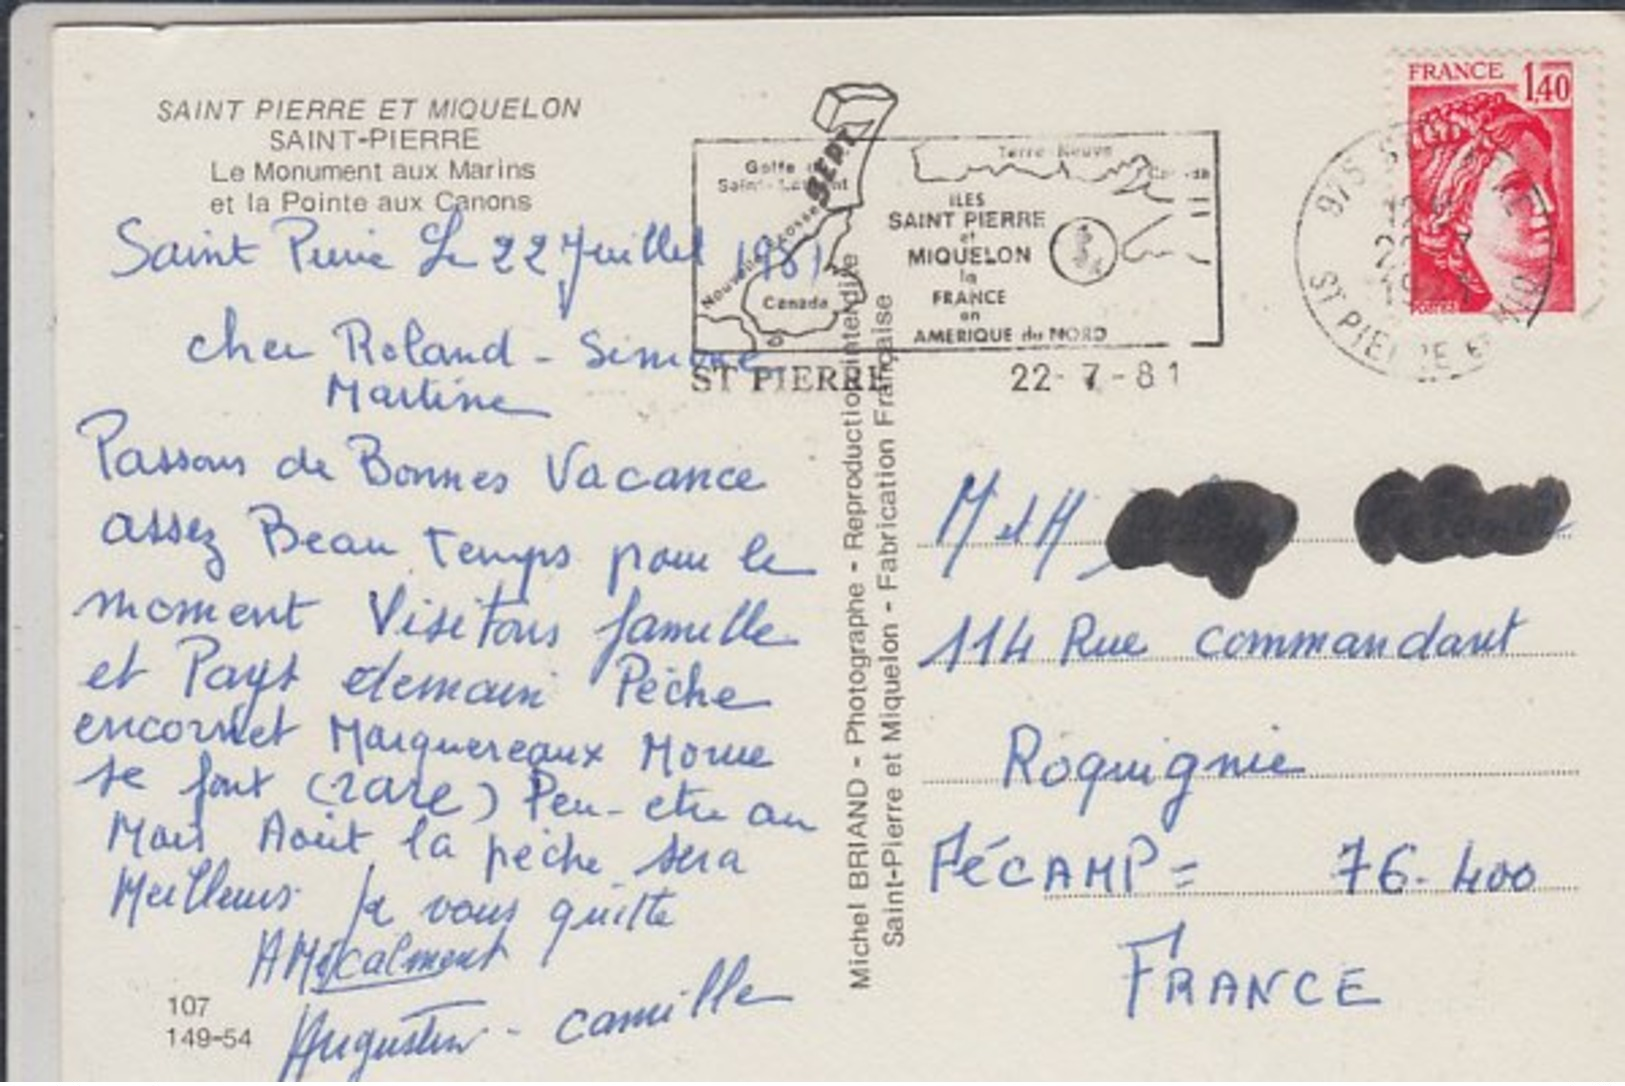 SAINT PIERRE ET MIQUELON
SAINT-PIERRE
Le Monument aux Marins
et la Pointe aux Canons
Saint Pierre Le 22 Juillet 1981
cher Roland - Simone
Martine
Passons de Bonnes Vacance
assez Beau Temps pour le
moment Visitons famille
et Pays demain Pêche
encornet Marquereaux Morue
se font (rare) Peu-etre au
Mois Août la pêche sera
Meilleurs Je vous quitte
AMicalment
Augustin - camille
107
149-54
Michel BRIAND - Photographe - Reproduction interdite
Saint-Pierre et Miquelon - Fabrication Française
Golfe
Saint-Laurent
SEPT
Nouvelle Ecosse
Canada
Terre Neuve
Canada
ILES
SAINT PIERRE
et
MIQUELON
la
FRANCE
en
AMERIQUE du NORD
ST PIERRE
22-7-81
975 ST PIERRE ET MIQ
FRANCE 1,40
POSTES
M et M
114 Rue commandant
Roquignie
FéCAMP = 76-400
FRANCE